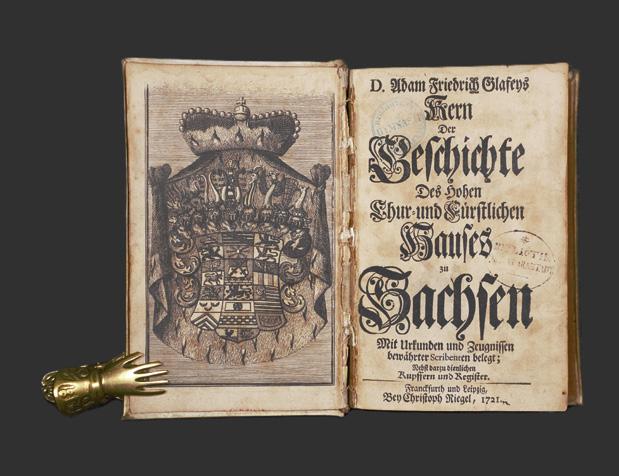 D. Adam Friedrich Glafeys
Kern
Der
Geschichte
Des Hohen
Chur- und Fürstlichen
Hauses
zu
Sachsen
Mit Urkunden und Zeugnissen
bewährter Scribenten belegt;
Nebst darzu dienlichen
Kupffern und Register.
Franckfurth und Leipzig,
Bey Christoph Riegel, 1721.